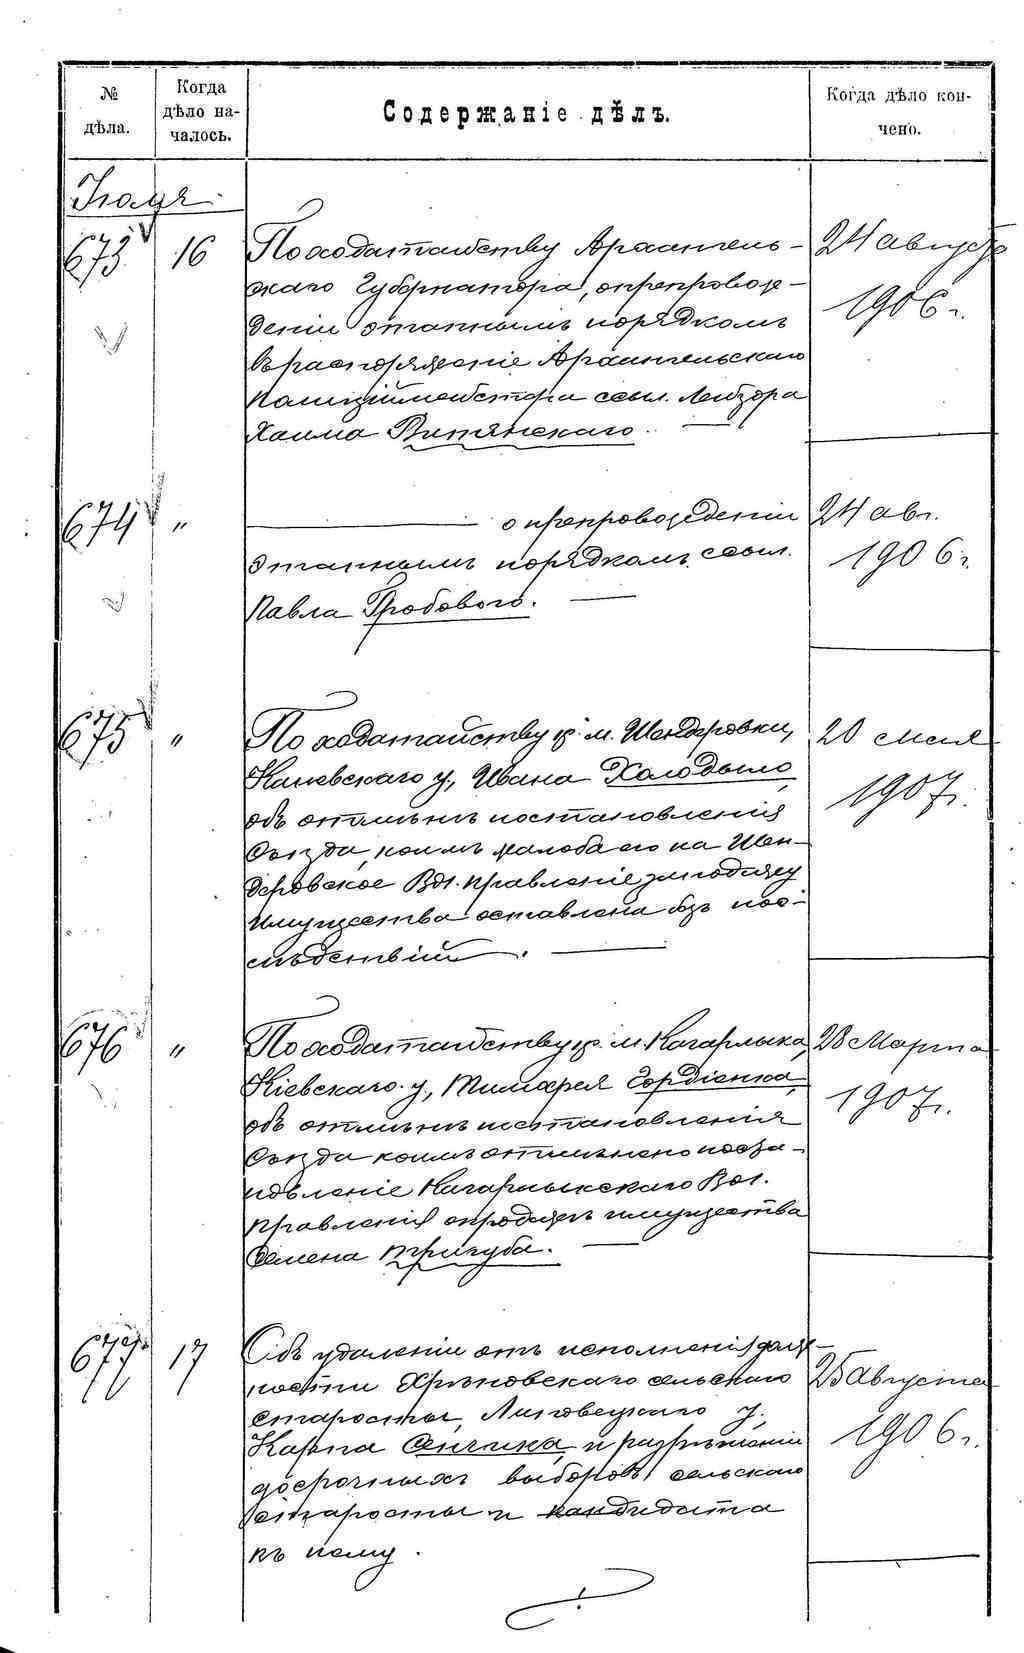 № дѣла.
Когда дѣло на-
чалось.
Содержаніе дѣлъ.
Когда дѣло кон-
чено.
Іюля
673 16 По ходатайству Архангель-
скаго Губернатора, о препровож-
деніи этапнымъ порядкомъ
въ распоряженіе Архангельскаго
Полиціймейстера ссыл. Лейзора
Хаима Витянскаго. —
24 августа
1906 г.
674 " — о препровожденіи
этапнымъ порядкомъ ссыл.
Павла Гробового. —
24 авг.
1906 г.
675 " По ходатайству кр. м. Шендеровки,
Каневскаго у., Ивана Холодыло,
объ отмѣнѣ постановленія
Съѣзда, коимъ жалоба его на Шен-
деровское Вол. правленіе за продажу
имущества оставлена безъ пос-
лѣдствій. —
20 Мая
1907 г.
676 " По ходатайству кр. м. Кагарлыка,
Кіевскаго у., Тимофея Гордіенка,
объ отмѣнѣ постановленія
Съѣзда коимъ отмѣнено поста-
новленіе Кагарлыкскаго Вол.
правленія о продажѣ имущества
Семена Пригуба. —
28 Марта
1907 г.
677 17 Объ удаленіи отъ исполненія долж-
ности Хрѣновскаго сельскаго
старосты, Липовецкаго у.
Карпа Сенчика, и разрѣшеніи
досрочныхъ выборовъ сельскаго
старосты и кандидата
къ нему.
25 Августа
1906 г.